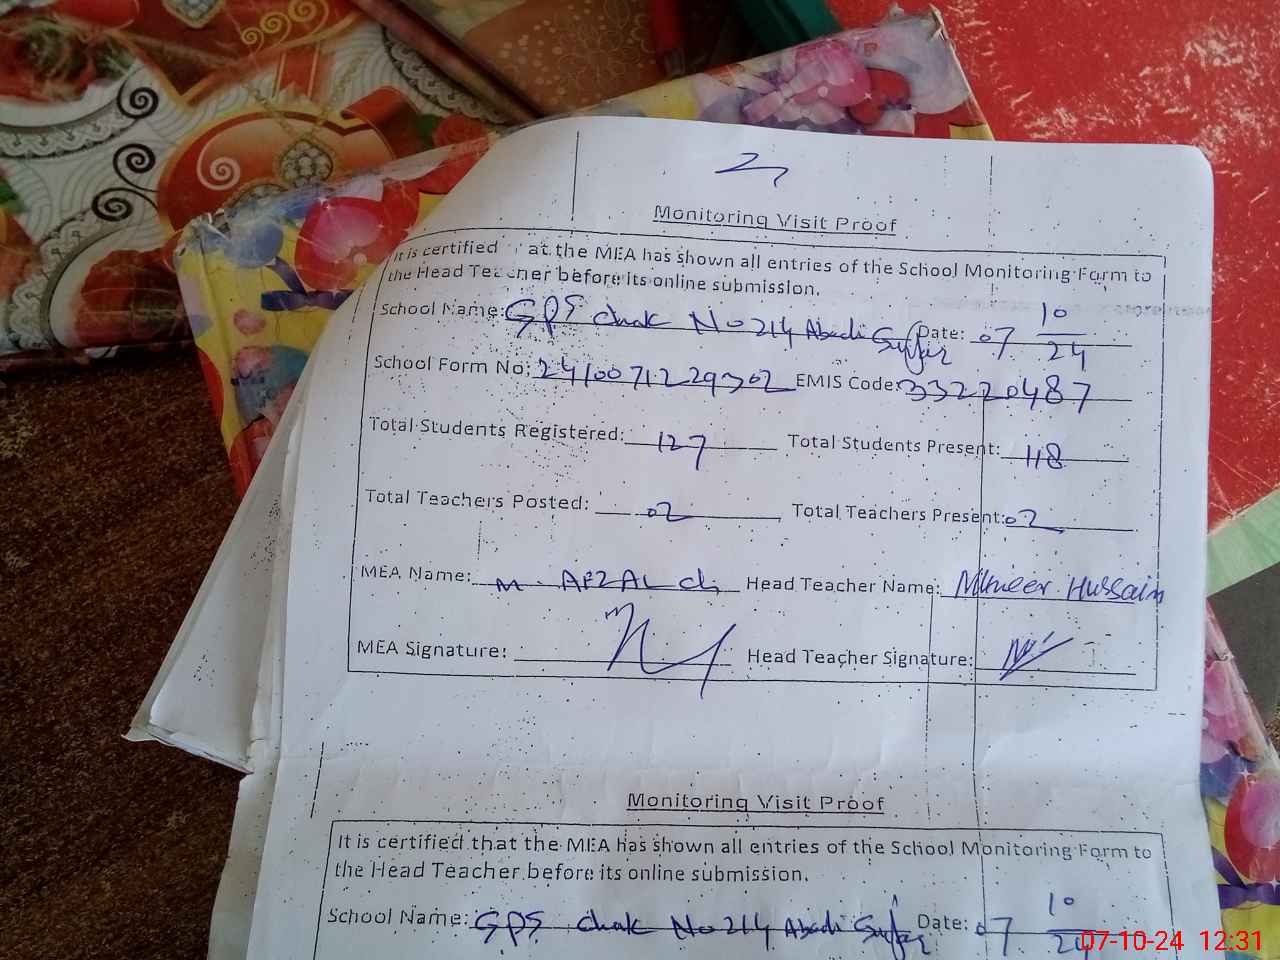 Monitoring Visit Proof
It is certified at the MEA has shown all entries of the School Monitoring Form to
the Head Teacher before its online submission.
School Name: GPS Chak No 214 Abadi Date: 07 10/24
School Form No: 2410071229302 EMIS Code: 33220487
Total Students Registered: 127 Total Students Present: 118
Total Teachers Posted: 02 Total Teachers Present: 02
MEA Name: M. AFZAL Ch Head Teacher Name: Muneer Hussain
MEA Signature: Head Teacher Signature:
Monitoring Visit Proof
It is certified that the MEA has shown all entries of the School Monitoring Form to
the Head Teacher before its online submission.
School Name: GPS Chak No 214 Abadi Date: 07 10/24
07-10-24 12:31